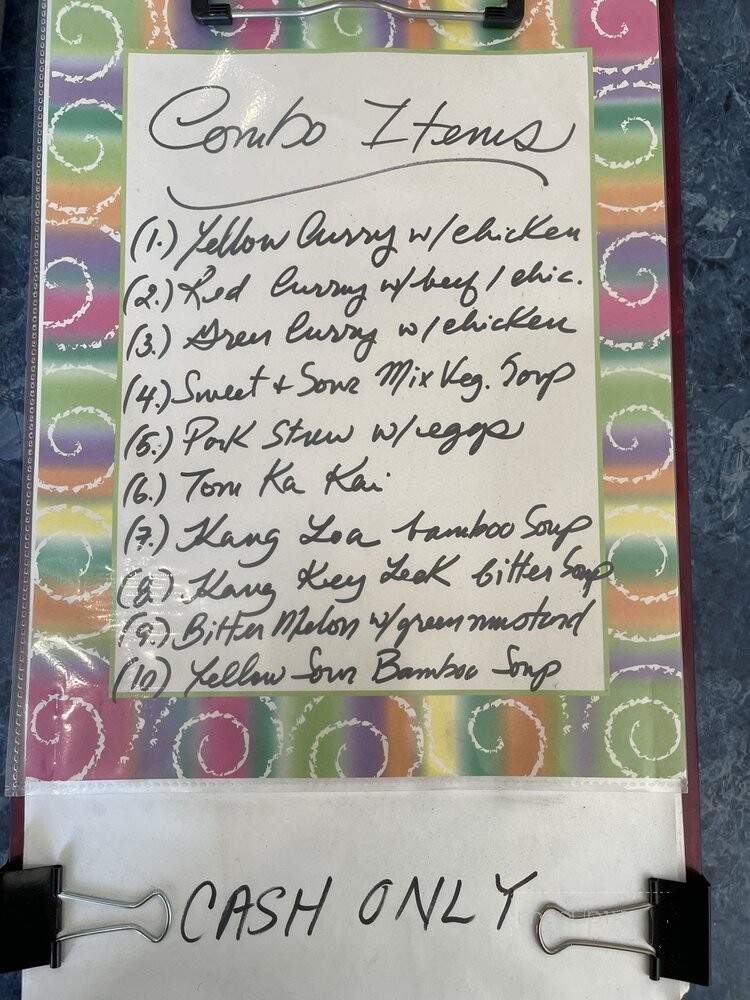 Combo Items
(1.) Yellow Curry w/ chicken
(2.) Red Curry w/ beef / chic.
(3.) Green Curry w/ chicken
(4.) Sweet + Sour Mix Veg. Soup
(5.) Pork Stew w/ eggs
(6.) Tom Ka Kai
(7.) Kang Loa bamboo Soup
(8.) Kang Key Leck bitter Soup
(9.) Bitter Melon w/ green mustard
(10) Yellow Sour Bamboo Soup
CASH ONLY